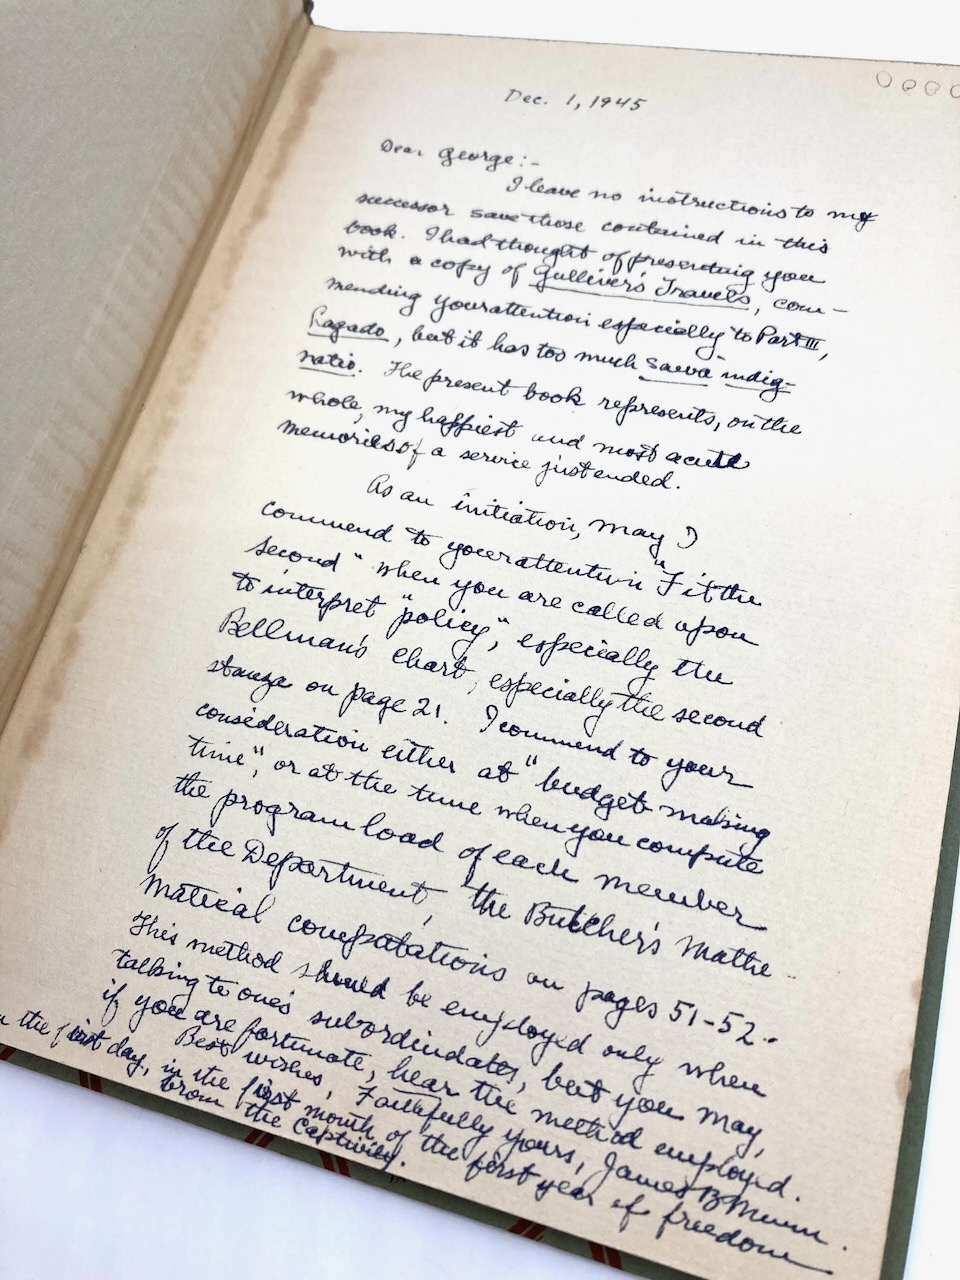 Dec. 1, 1945
Dear George:-
I leave no instructions to my
successor save those contained in this
book. I had thought of presenting you
with a copy of Gulliver's Travels, com-
mending your attention especially to Part III,
Lagado, but it has too much saeva indig-
natio. The present book represents, on the
whole, my happiest and most acute
memories of a service just ended.
As an initiation, may I
commend to your attention "Fit the
second" when you are called upon
to interpret "policy", especially the
Bellman's chart, especially the second
stanza on page 21. I commend to your
consideration either at "budget making
time", or at the time when you compute
the program load of each member
of the Department, the Butcher's Mathe-
matical computations on pages 51-52.
This method should be employed only when
talking to one's subordinates, but you may,
if you are fortunate, hear the method employed.
Best wishes, Faithfully yours, James B Munn.
the first day, in the first month of the first year of freedom
from the captivity.